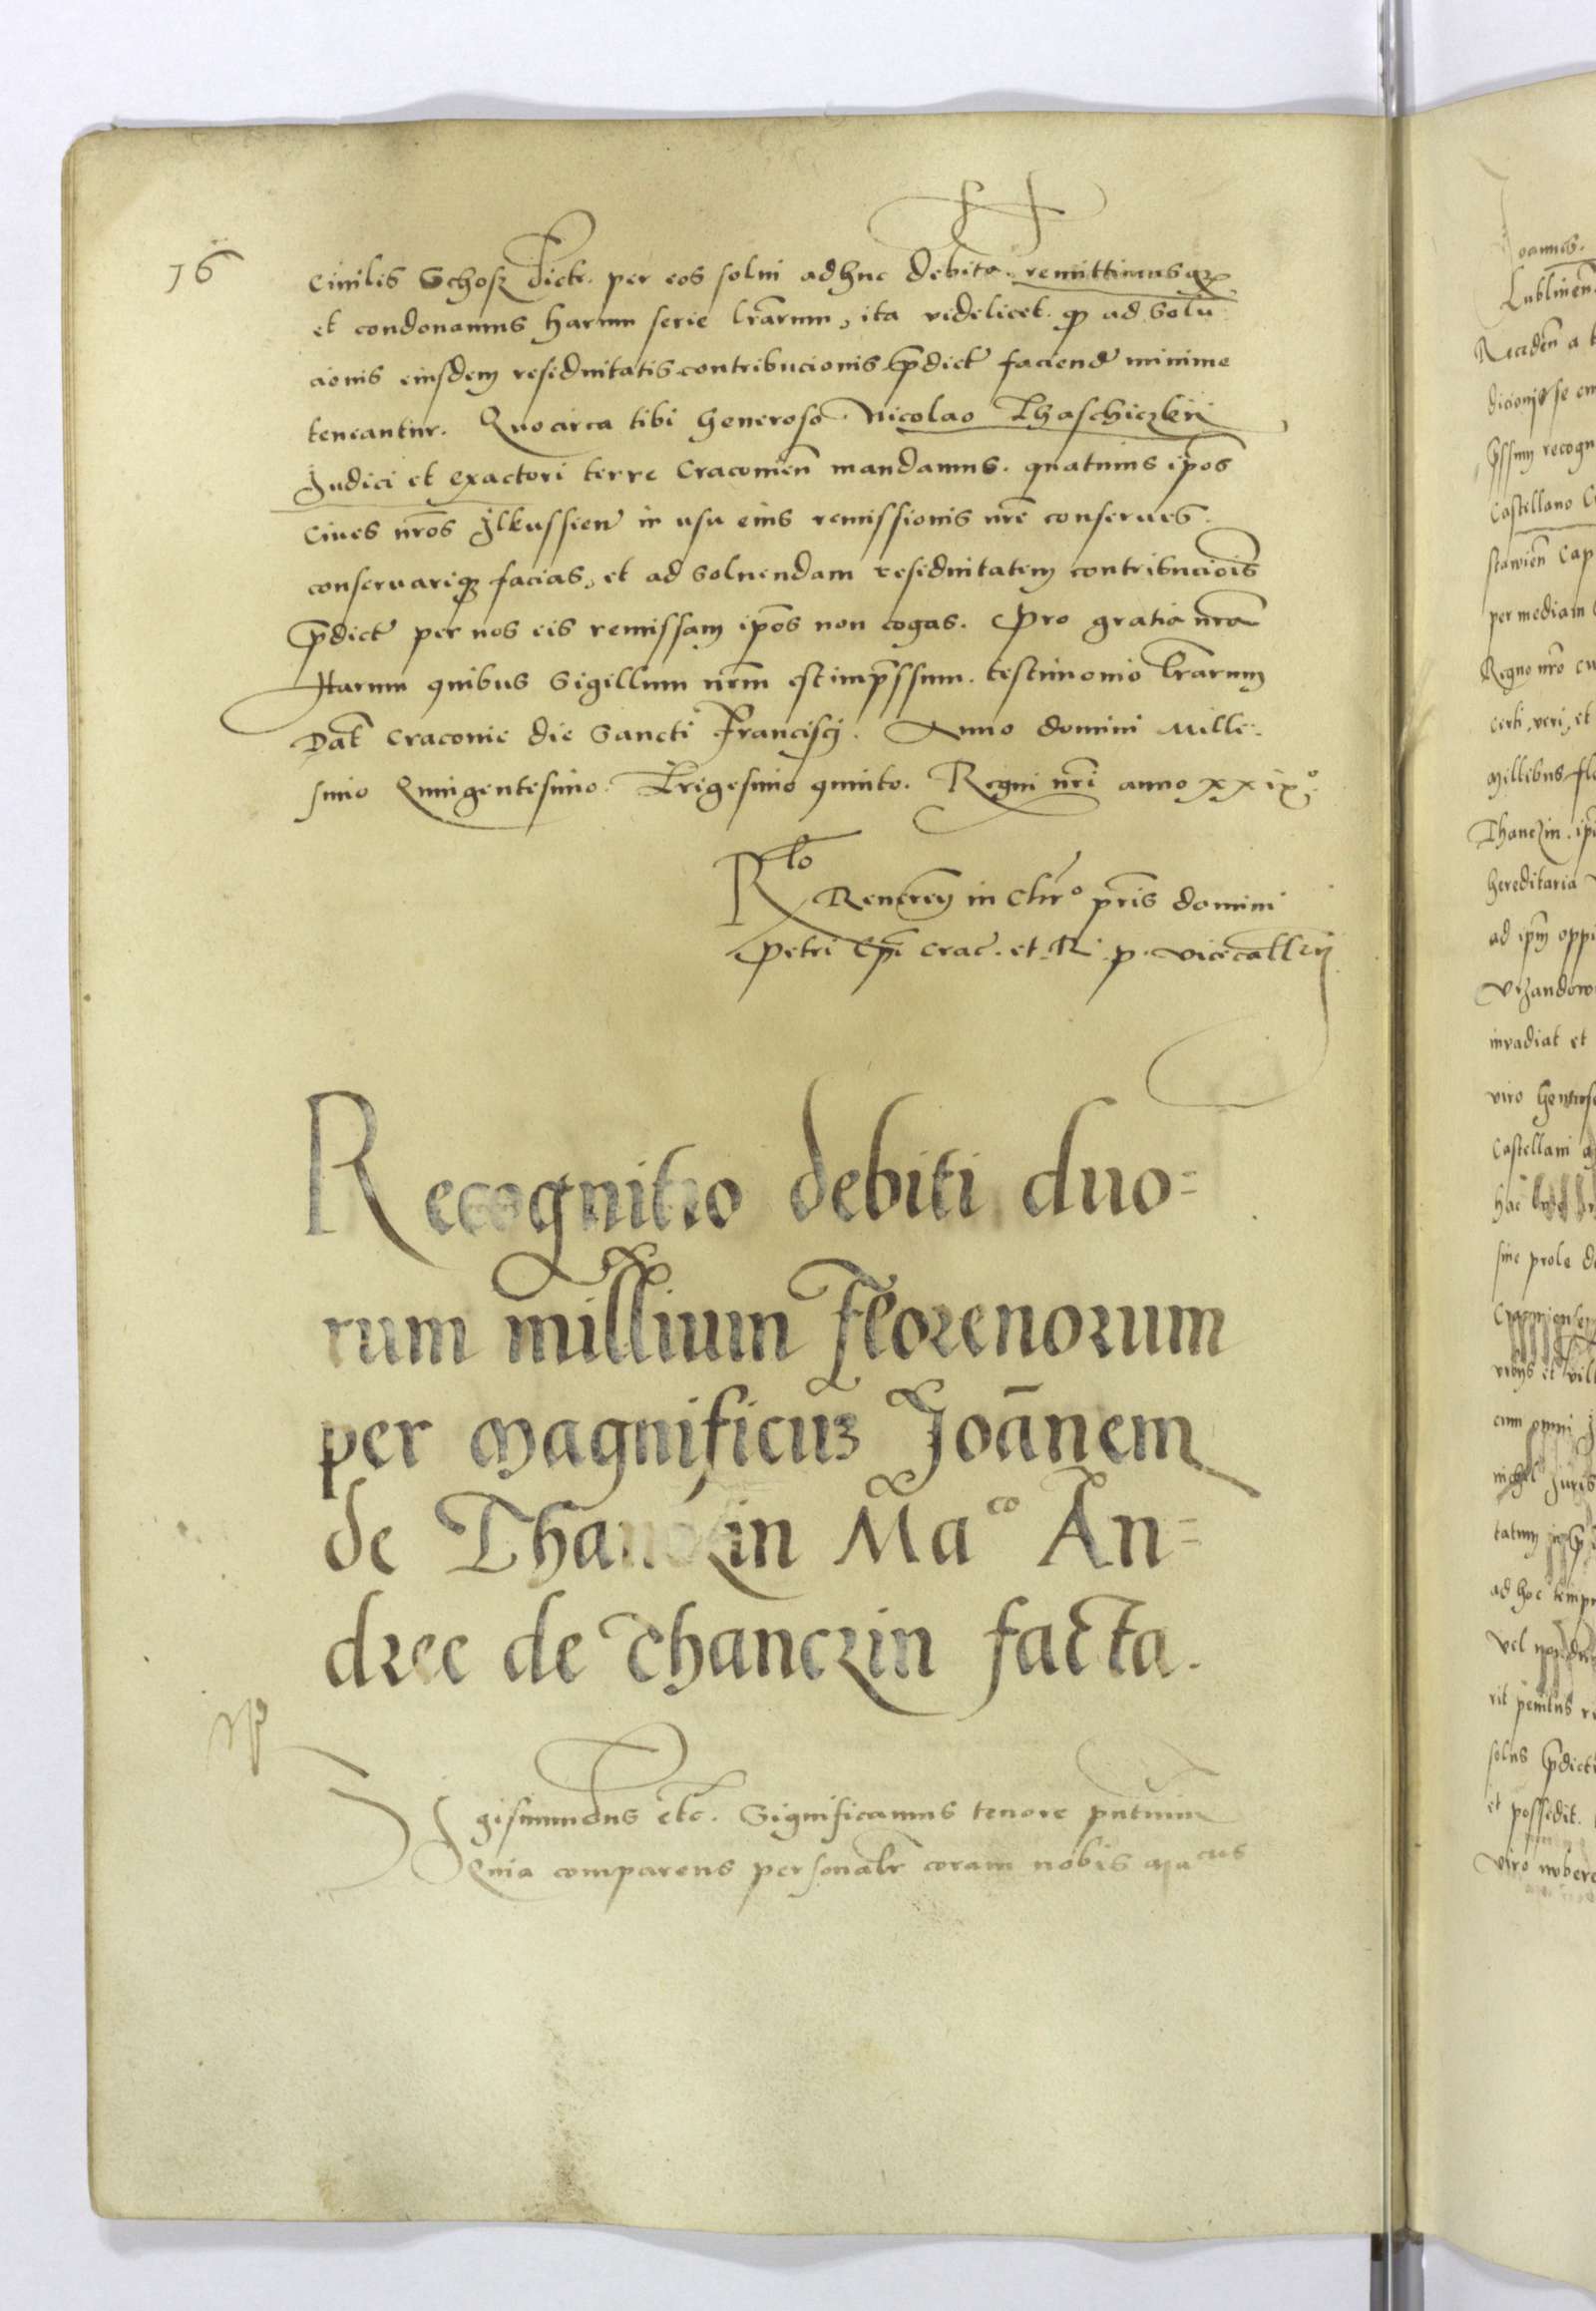 16
Ciuilis Schosz dicte. per eos solui adhuc debita. remittimusqꝫ
et condonamus harum serie lrarum, ita videlicet. ꝙ ad Solu
cionis eiusdem residuitatis contribucionis pdicte faciende minime
teneantur. Quocirca tibi Generoso Nicolao Thaschiczkij
Judici et exactori terre Cracouien mandamus. quatinus ipos
Ciues nros Ilkussien in usu eius remissionis nre conserues.
conseruariqꝫ facias, et ad Soluendam residuitatem contribuciois
pdicte per nos eis remissam ipos non cogas. Pro gratia nra
Harum quibus Sigillum nrm est impssum. testimonio lrarum
Dat Cracouie die Sancti Francisci. Anno domini Mille-
simo Quingentesimo. Trigesimo quinto. Regni nri anno xxix°.
Rlo
Reueren in Chr° pris domini
Petri Epi Crac. et R. p. vicecallrij
Recognitio debiti duo=
rum millium Florenorum
per Magnificuꝫ Joānem
de Thanczin Maco An=
dree de Thanczin facta.
Sigismundus etc. Significamus tenore pntium
Quia comparens personalr coram nobis Macus
Joannes.
Lublinen
per mediam
Regno nro
Certi, veri, et
Millibus flo
Thanczin. ip
hereditaria
ad ipm oppi
Vrzandow
inuadiat et
viro Generos
Castellani
sine prole
ad hoc temp
et possedit.